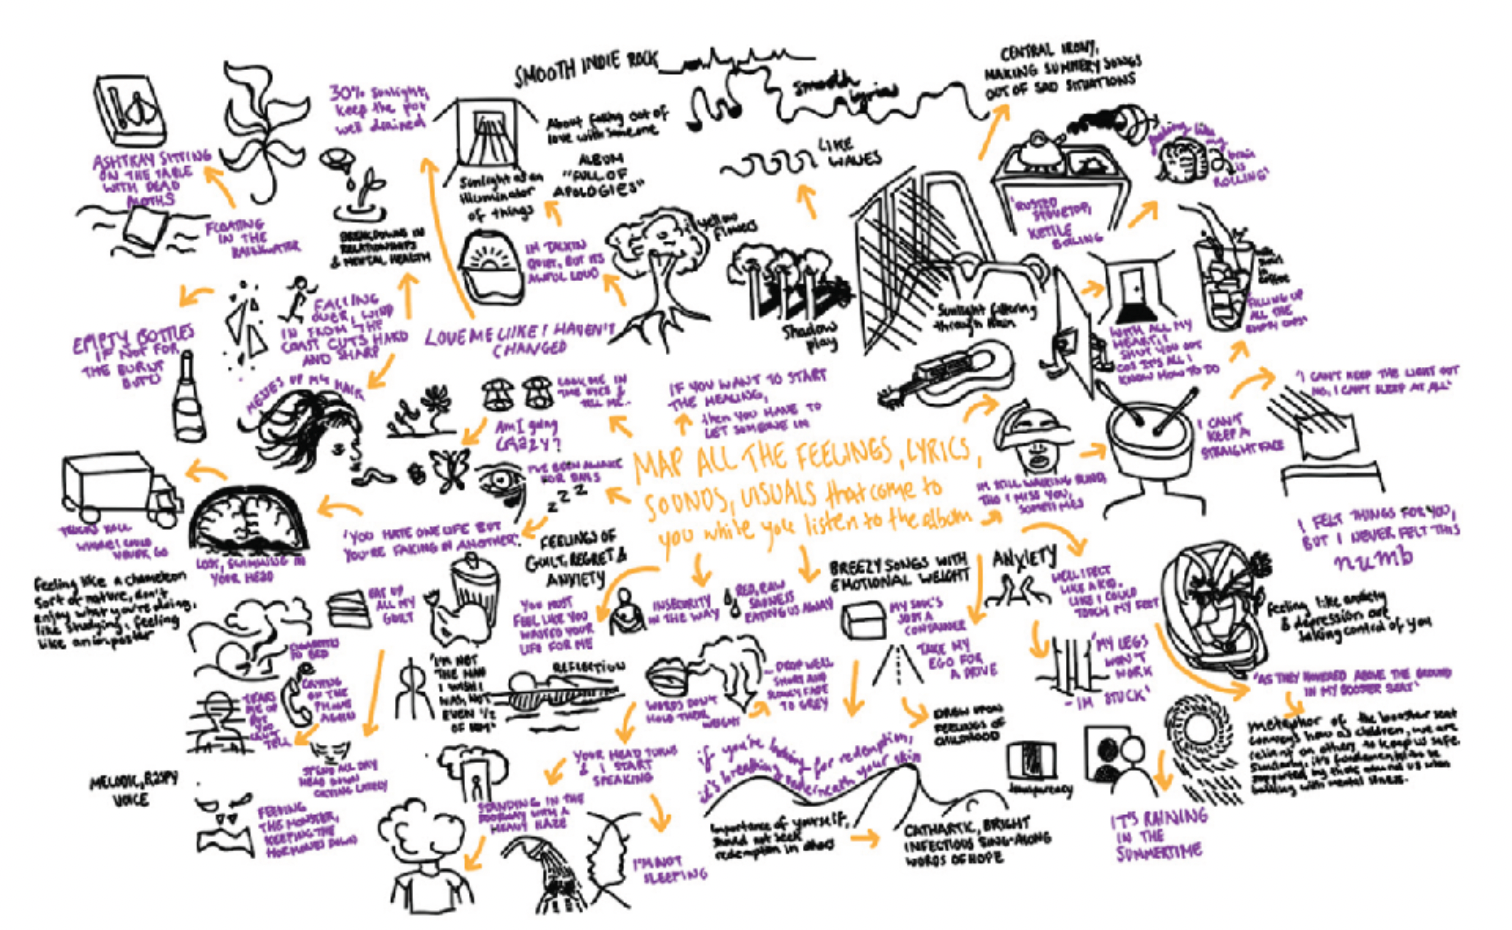 SMOOTH INDIE ROCK
smooth
lyrics
CENTRAL IRONY,
MAKING SUMMERY SONGS
OUT OF SAD SITUATIONS
30% sunlight,
keep the pot
well drained
About falling out of
love with someone
ALBUM
"FULL OF
APOLOGIES"
Sunlight as an
illuminator
of things
LIKE
WAVES
feeling like
my
brain
is
ROLLING'
ASHTRAY SITTING
ON THE TABLE
WITH DEAD
MOTHS
FLOATING
IN THE
RAINWATER
BREAKDOWNS IN
RELATIONSHIPS
& MENTAL HEALTH
IM TALKIN
QUIET, BUT ITS
AWFUL LOUD
yellow
flowers
'RUSTED
STOVETOP,
KETTLE
BOILING
Shadow
play
Sunlight filtering
through
'FILLING UP
ALL THE
EMPTY CUPS'
EMPTY BOTTLES
IF NOT FOR
THE BURNT
BUTTS
FALLING
OVER, WIND
IN FROM THE
COAST CUTS HARD
AND SHARP
LOVE ME LIKE I HAVEN'T
CHANGED
WITH ALL MY
HEART, I
SHUT YOU OUT
COS IT'S ALL I
KNOW HOW TO DO
MESSES UP MY HAIR,
LOOK ME IN
THE EYES &
TELL ME..
Am I going
CRAZY?
IF YOU WANT TO START
THE HEALING,
then YOU HAVE TO
LET SOMEONE IN
'I CAN'T KEEP THE LIGHT OUT
NO, I CAN'T SLEEP AT ALL'
I CAN'T
KEEP A
STRAIGHT FACE
MAP ALL THE FEELINGS, LYRICS,
SOUNDS, VISUALS that come to
you while you listen to the album
I'VE BEEN AWAKE
FOR DAYS
z z z
IM STILL WALKING BLIND,
THO I MISS YOU,
SOMETIMES
TRUCKS ROLL
WHERE I COULD
NEVER GO
LOST, SWIMMING IN
YOUR HEAD
'YOU HAVE ONE LIFE BUT
YOU'RE FAKING IN ANOTHER'.
FEELINGS OF
GUILT, REGRET &
ANXIETY
BREEZY SONGS WITH
EMOTIONAL WEIGHT
ANXIETY
I FELT THINGS FOR YOU,
BUT I NEVER FELT THIS
numb
Feeling like a chameleon
sort of nature, don't
enjoy what you're doing,
like studying, feeling
like an imposter
EAT UP
ALL MY
GUILT
YOU MUST
FEEL LIKE YOU
WASTED YOUR
LIFE FOR ME
INSECURITY
IN THE WAY
RED, RAW
SADNESS
EATING US AWAY
MY SOUL'S
JUST A
CONTAINER
TAKE MY
EGO FOR
A DRIVE
WELL I FELT
LIKE A KID.
LIKE I COULD
TOUCH MY FEET
feeling like anxiety
& depression are
taking control of you
'MY LEGS
WON'T
WORK
- IM STUCK'
TO BED
CRYING
ON THE
PHONE
AGAIN
TEARS
ME UP
BUT
YOU
CAN'T
TELL
"I'M NOT
THE MAN
I WISH I
WAS, NOT
EVEN 1/2
OF HIM"
REFLECTION
WORDS DON'T
HOLD THEIR
WEIGHT
- DROP WELL
SHORT AND
SLOWLY FADE
TO GREY
DRAW UPON
FEELINGS OF
CHILDHOOD
"AS THEY HOVERED ABOVE THE GROUND
IN MY BOOSTER SEAT'
metaphor of the booster seat
conveys how as children, we are
reliant on others to keep us safe.
Similarly, it's fundamental to be
supported by those around us when
battling with mental illness.
MELODIC, RASPY
VOICE
SPEND ALL DAY
HEAD DOWN
CRYING LATELY
YOUR HEAD TURNS
& I START
SPEAKING
if you're looking for redemption,
it's breathing underneath your skin
transparency
FEEDING
THE MONSTER,
KEEPING THE
HORMONES DOWN
STANDING IN THE
DOORWAY WITH A
HEAVY HAZE
I'M NOT
SLEEPING
Importance of yourself,
should not seek
redemption in others
CATHARTIC, BRIGHT
INFECTIOUS SING-ALONG
WORDS OF HOPE
IT'S RAINING
IN THE
SUMMERTIME